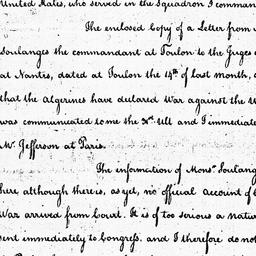 United States, who served in the Squadron I comman
The enclosed Copy of a Letter from
Soulanges the commandant at Toulon to the Judges
at Nantes, dated at Toulon the 14th of last month,
that the Algerines have declared War against the
was communicated to me the Ult and I immediate
Mr. Jefferson at Paris.
The information of Monsr. Soulang
here although there is, as yet, no official account of
War arrived from Court. It is of too serious a natu
sent immediately to Congress. and I therefore do not